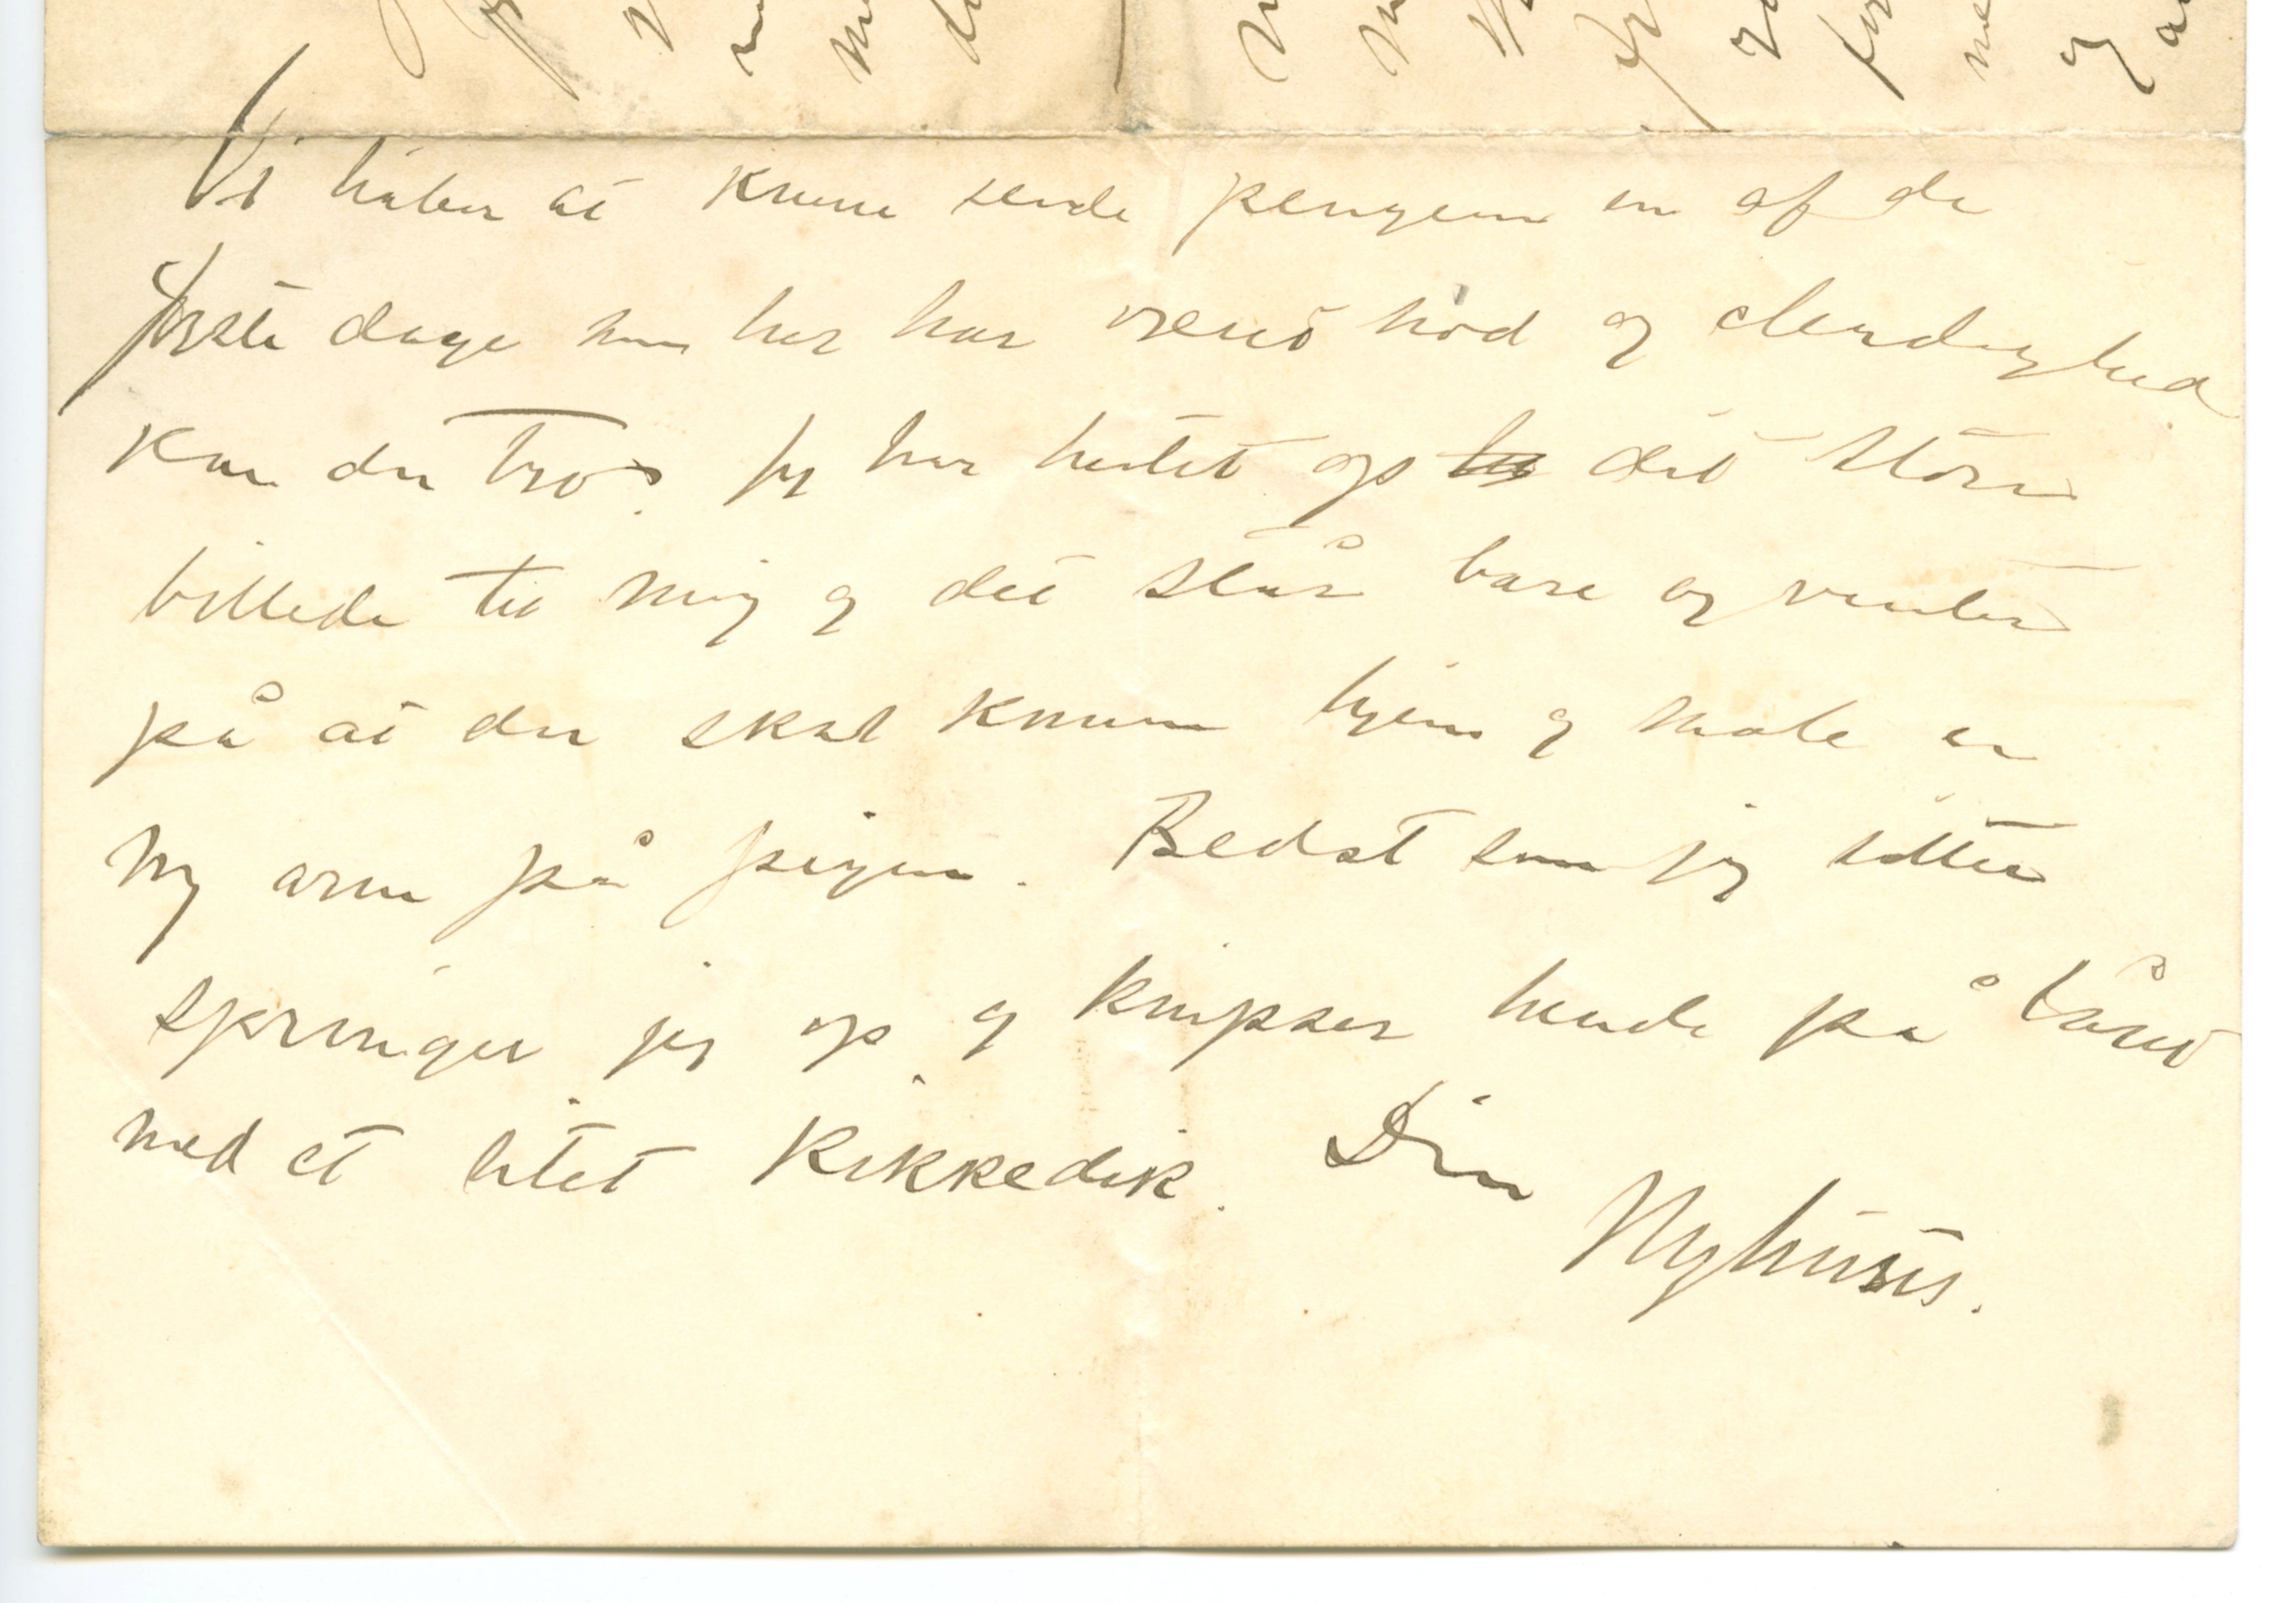 Vi håber at kunne sende pengene en af de
første dage men her har været nød og elendighed
kan du tro. Jeg har hentet op det større
billede til mig og det står bare og venter
på at du skal komme hjem og male en
ny arm på pigen. Bedst som jeg sitter
springer jeg op og knipser hende på tåen
med et litet Kikkedik. Din
Nyhuus.